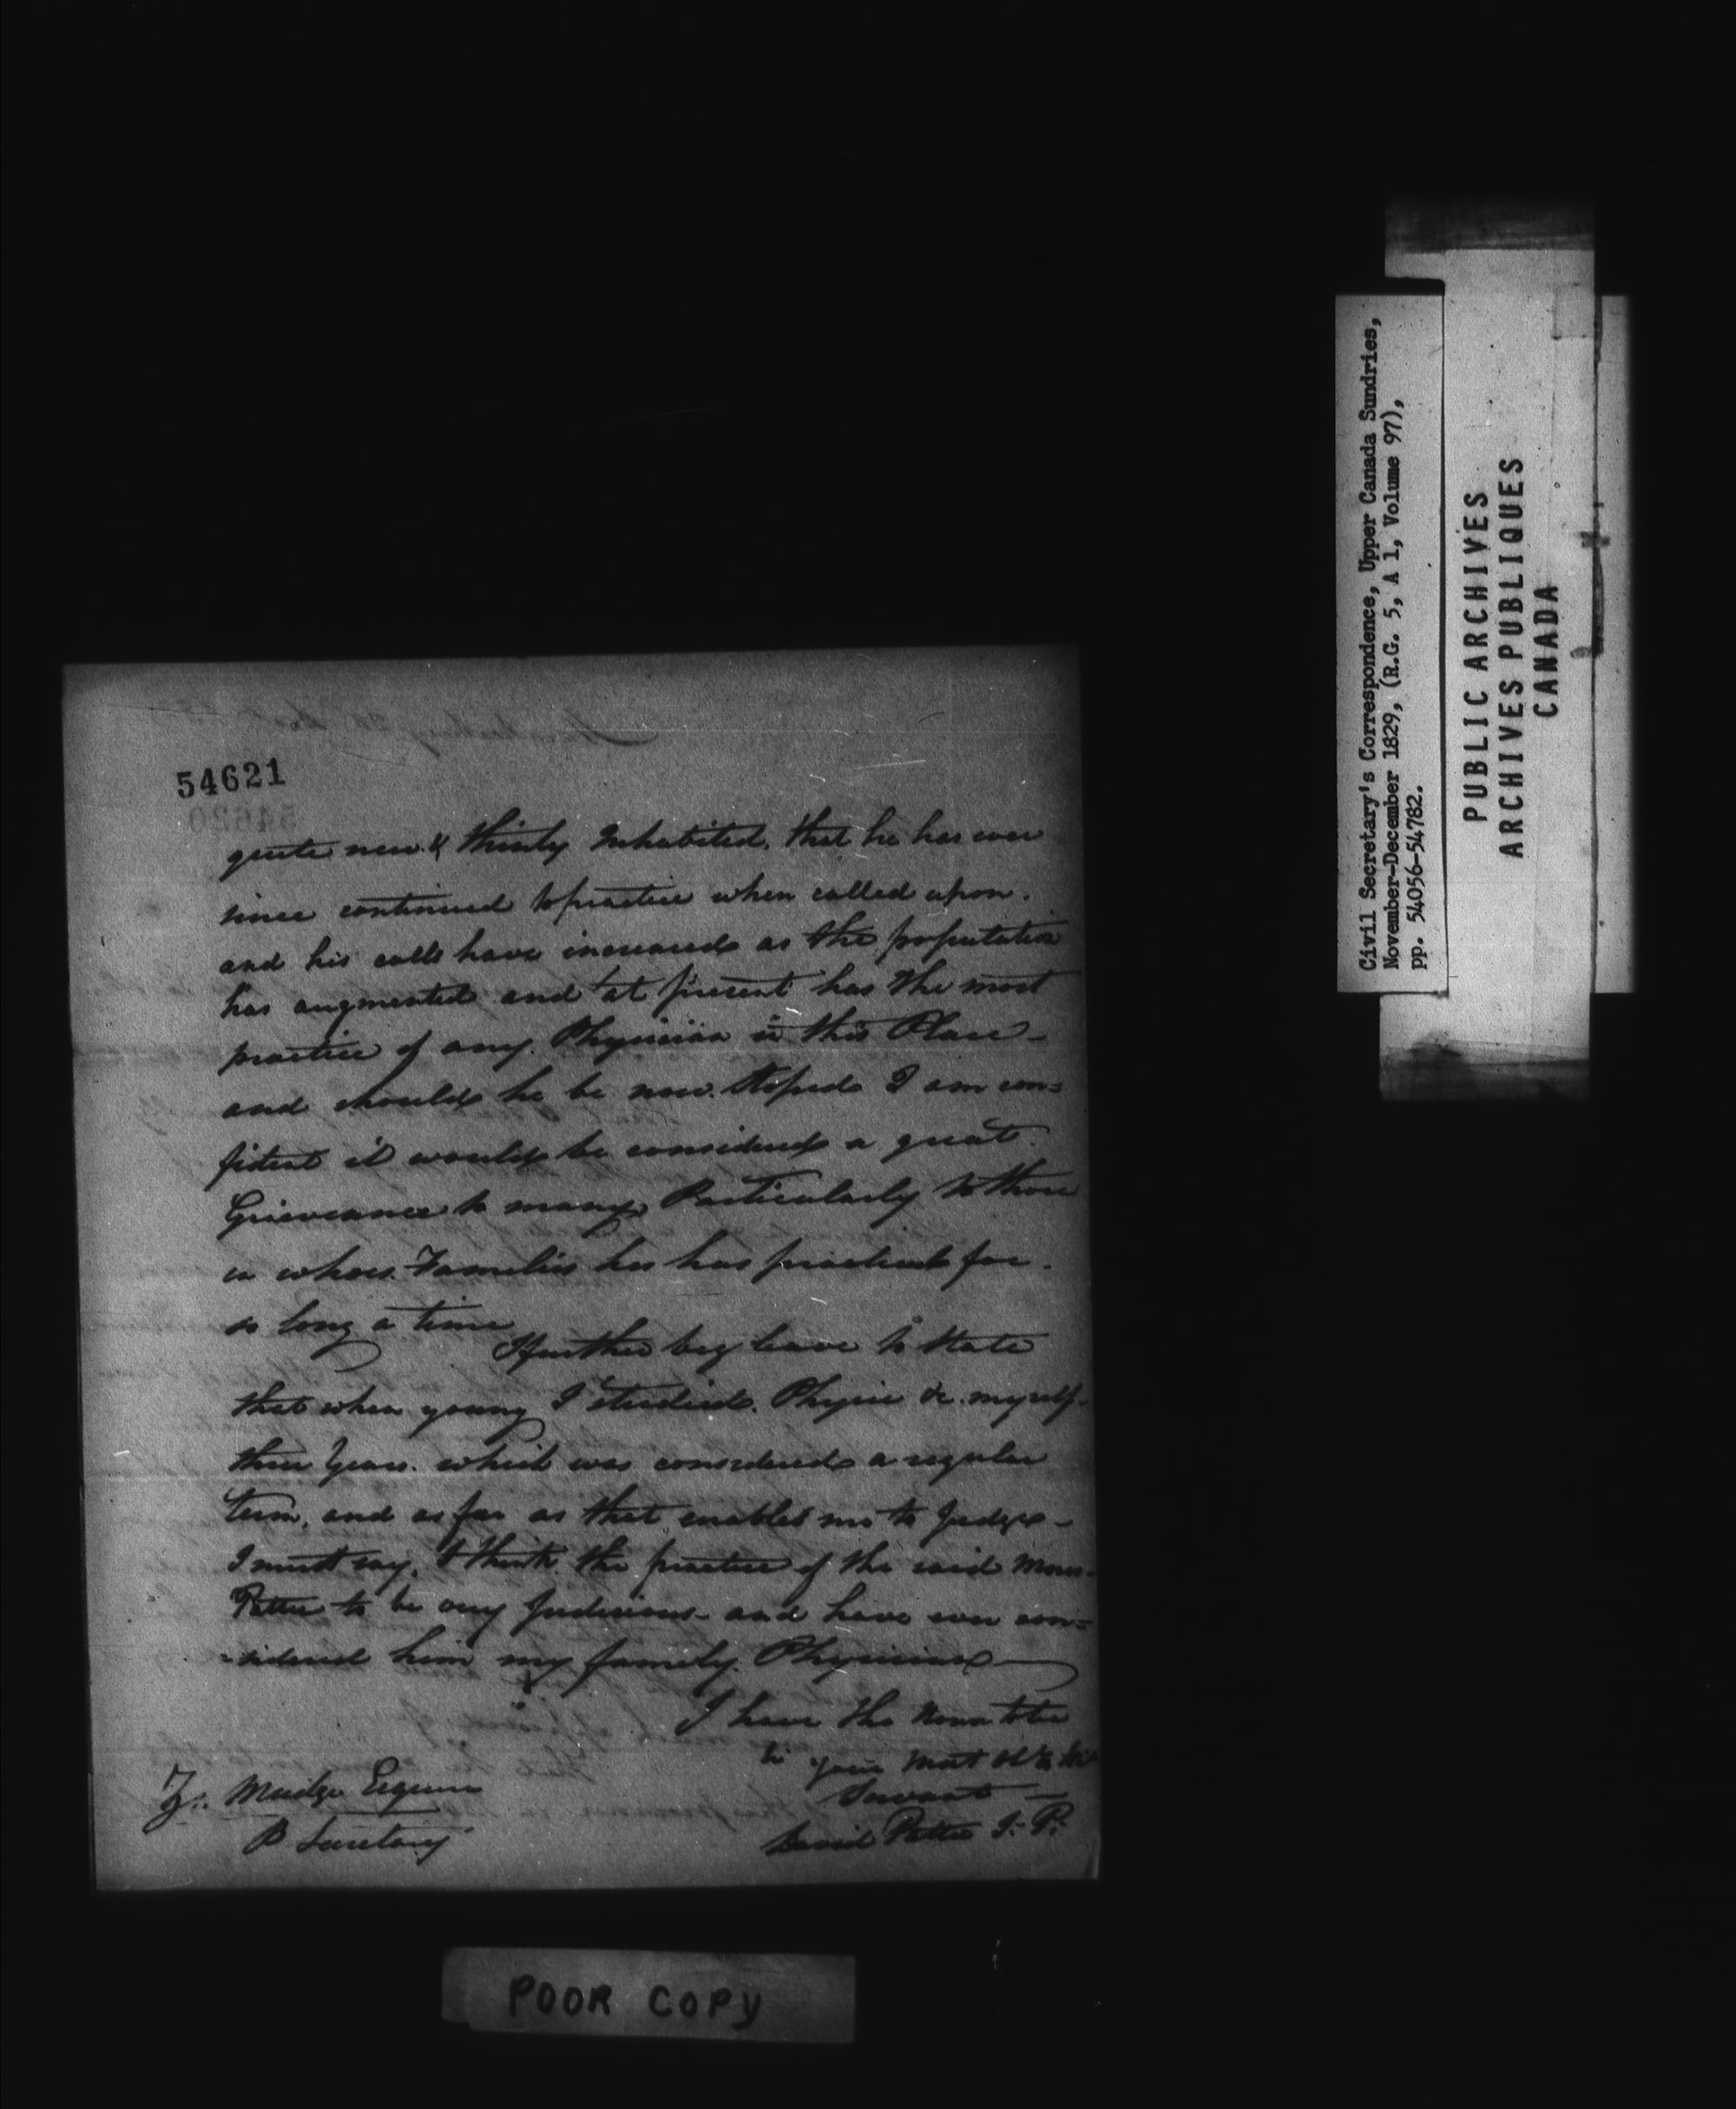 54621
quite new & thinly Inhabited, that he has ever
since continued to practice when called upon.
and his calls have increased as the population
has augmented and at present has the most
practice of any Physician in this Place -
and should he be now stoped I am con=
fident it would be considered a great
Grieveance to many, Particularly to those
in whose Families he has practiced for
so long a time
I further beg leave to State
that when young I studied Physic &c. myself
three Years. which was considered a regular
term, and as far as that enables me to Judge -
I must say, I think the practice of the said
Pattee to be very Judicious - and have ever con=
=sidered him my family Physician
I have the Honor to be
Sir your most
Servant
David Pattee J. P.
Z. Mudge Esquire
P Secretary
POOR COPY
Civil Secretary's Correspondence, Upper Canada Sundries,
November-December 1829, (R.G. 5, A 1, Volume 97),
pp. 54056-54782.
PUBLIC ARCHIVES
ARCHIVES PUBLIQUES
CANADA